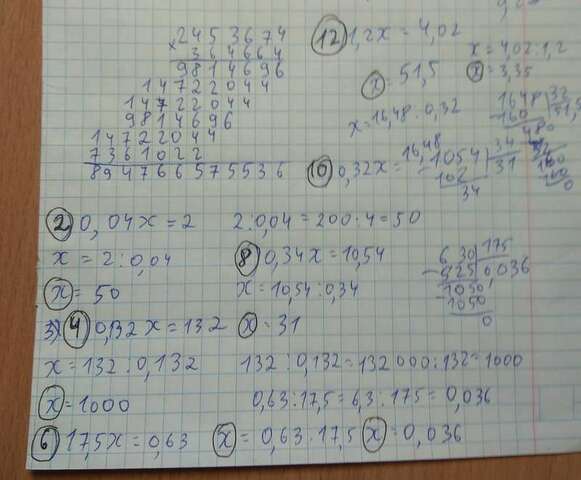 2453674
×364664
9814696
14722044
14722044
9814696
14722044
7361022
894766575536
12 1,2x = 4,02
x = 4,02 : 1,2
x = 3,35
x = 51,5
x = 16,48 : 0,32
1648 32
160 51,5
480
160
160
0
10 0,32x = 16,48
1054 34
102 31
34
2 0,04x = 2
2 : 0,04 = 200 : 4 = 50
x = 2 : 0,04
x = 50
8 0,34x = 10,54
x = 10,54 : 0,34
x = 31
6,30 175
525 0,036
1050
1050
0
4 0,132x = 132
x = 132 : 0,132
132 : 0,132 = 132000 : 132 = 1000
x = 1000
0,63 : 17,5 = 6,3 : 175 = 0,036
6 17,5x = 0,63
x = 0,63 : 17,5
x = 0,036